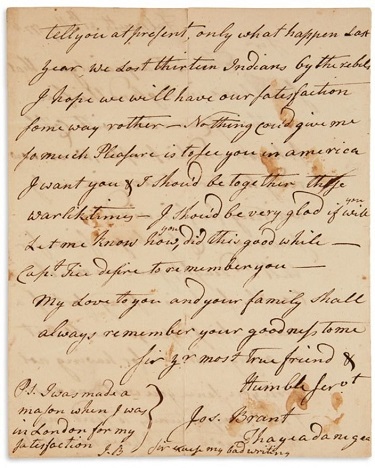 tell you at present, only what happen Last
year, we Lost thirteen Indians by the rebels
I hope we will have our satisfaction
some way rother — Nothing could give me
so much Pleasure is to see you in america
I want you & I should be together these
warlike times — I should be very glad if you will
Let me know how you did this good while —
Capt. Tice desire to remember you —
My Love to you and your family shall
always remember your goodness to me
Sir yr most true friend &
Humble Servt
Jos. Brant
Thayeadanegea
P.S. I was made a
mason when I was
in London for my
satisfaction J.B
Sir excuse my bad writing